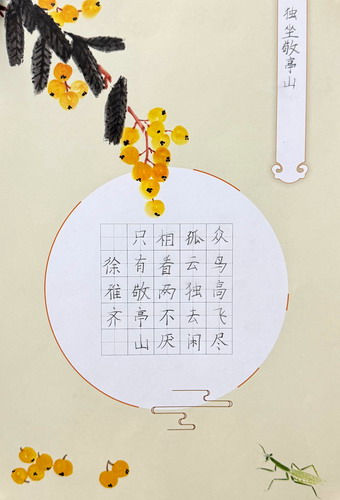 独坐敬亭山
众鸟高飞尽
孤云独去闲
相看两不厌
只有敬亭山
徐雅齐